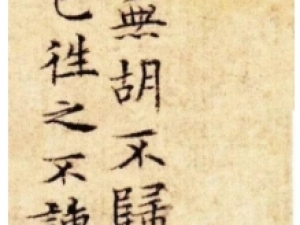 無胡不歸
已徃之不諫